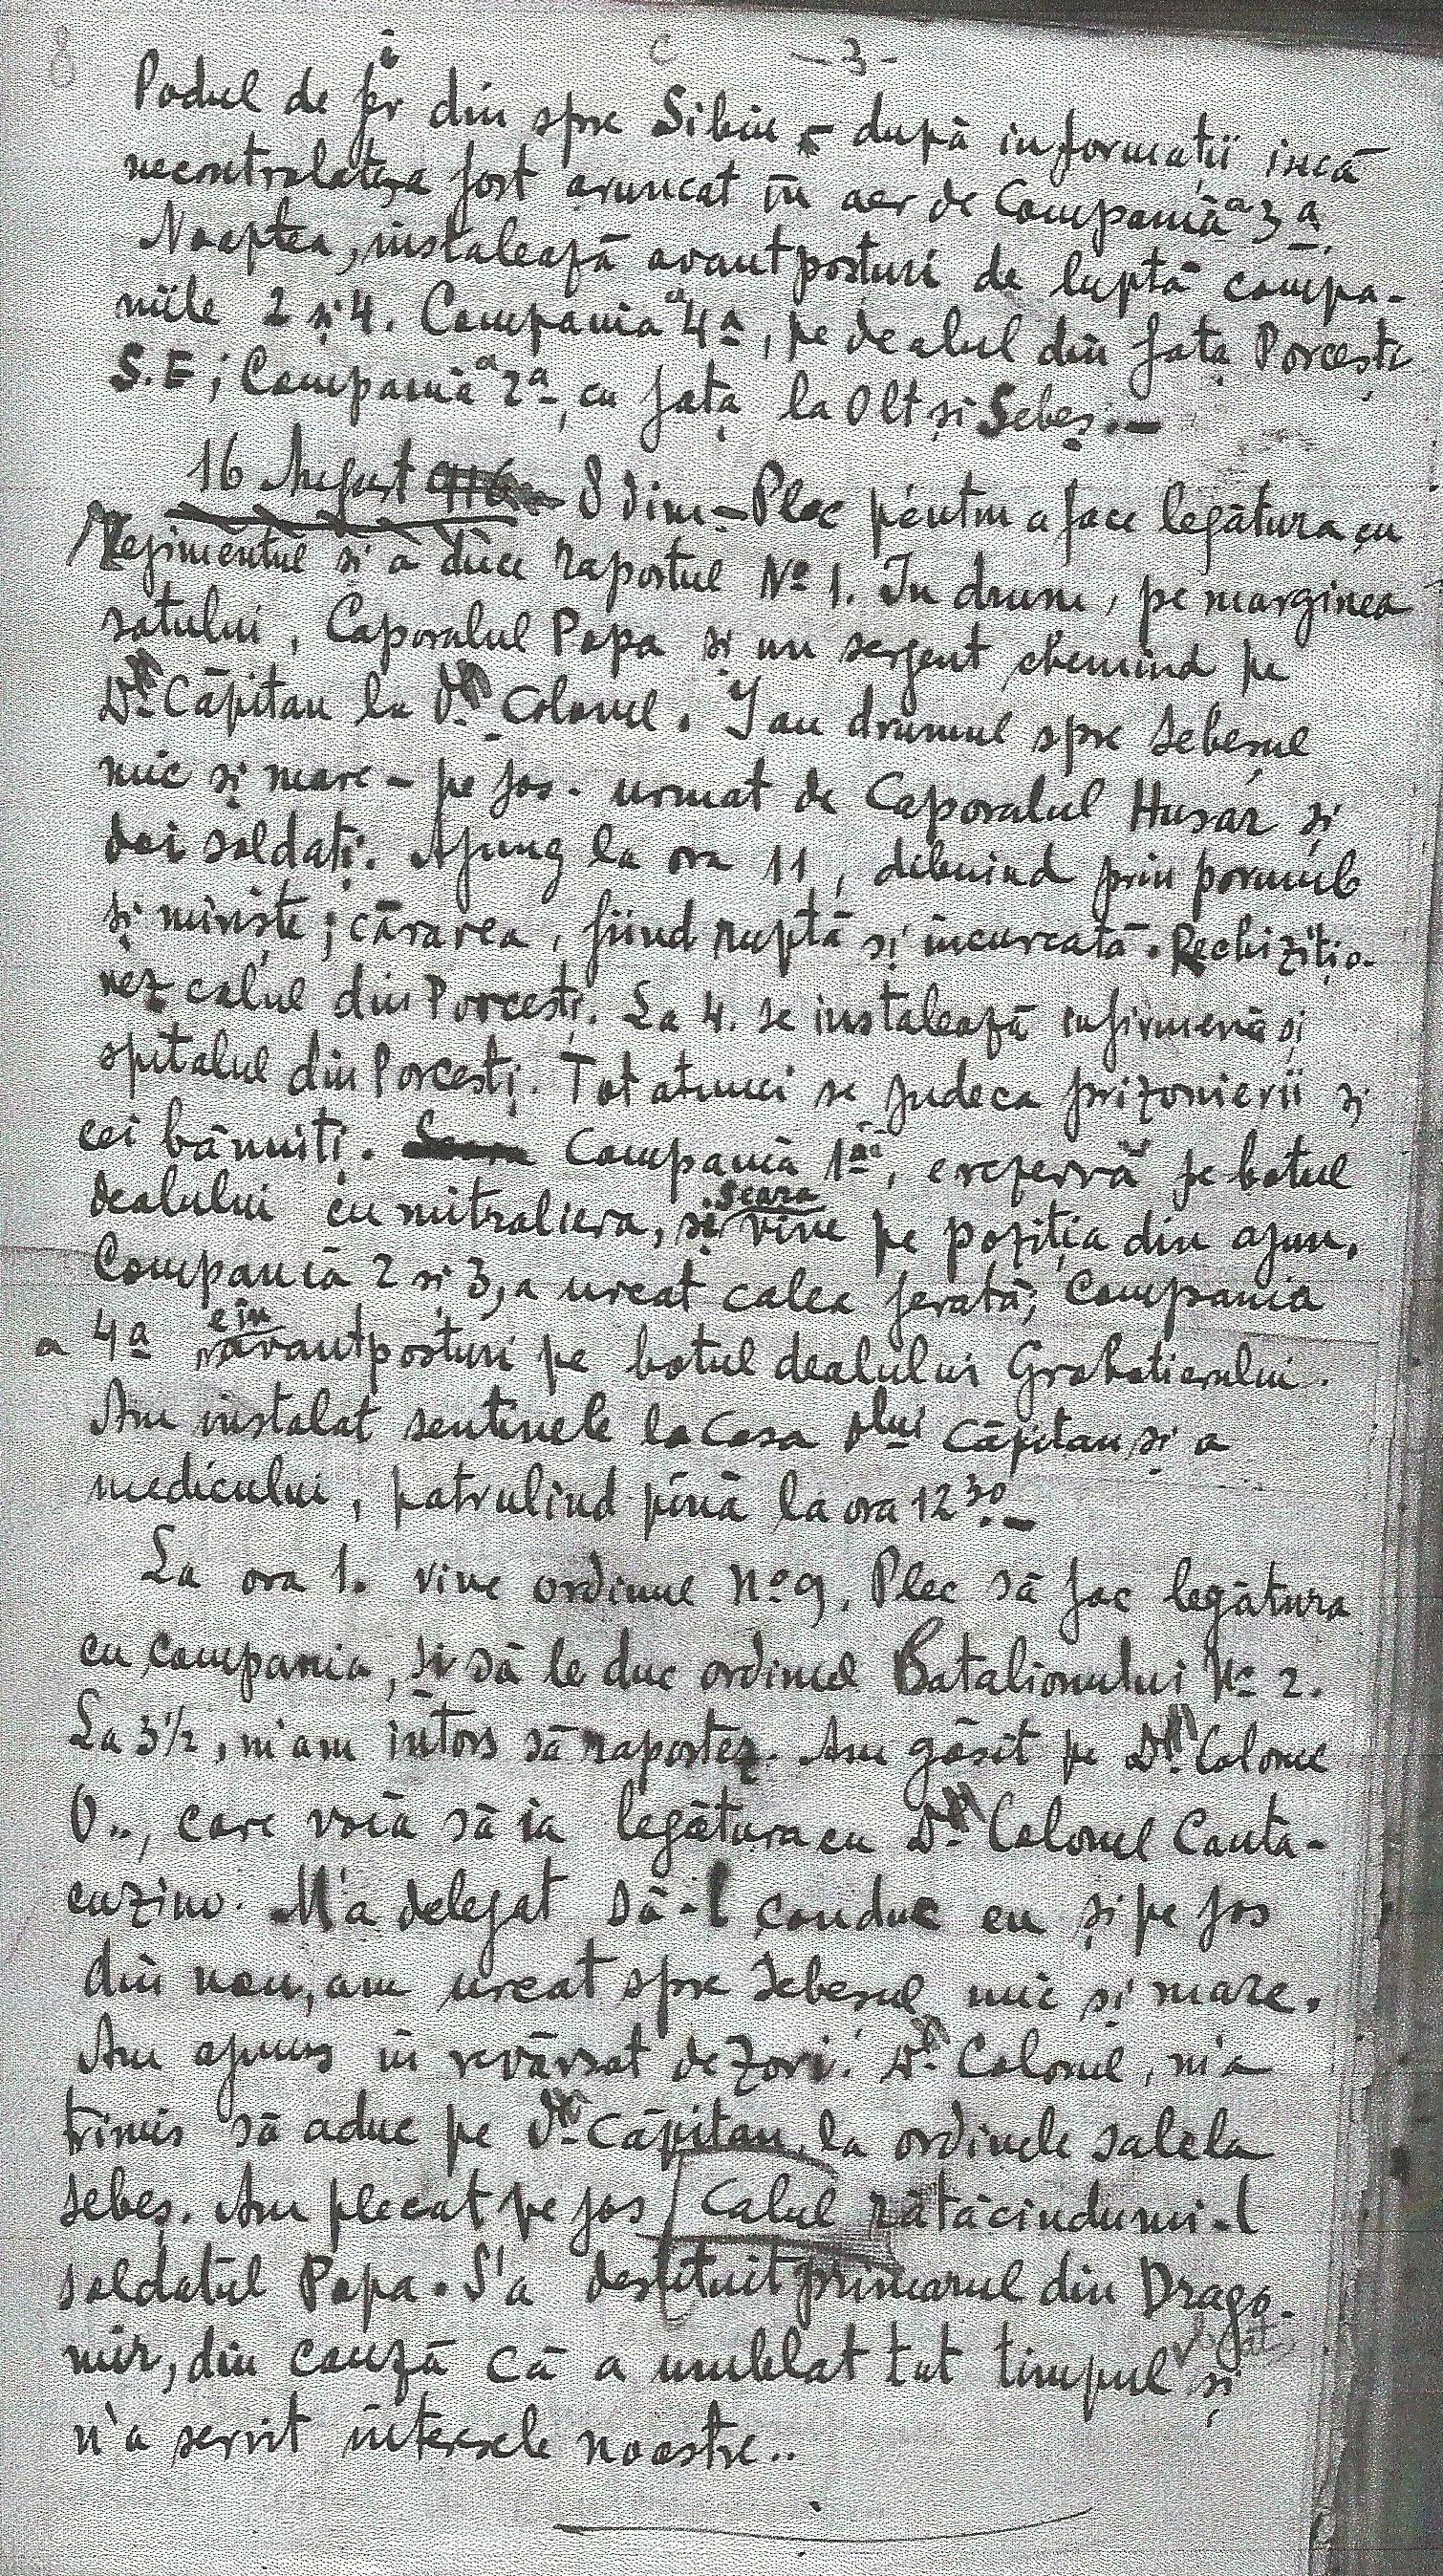 - 3 -
Podul de fer din spre Sibiu - după informații incă
necontrolate, a fost aruncat în aer de Compania a 3a.
Noaptea, instalează avantposturi de luptă compa-
niile 2 și 4. Compania a 4a, pe dealul din fața Porcești
S.E; Compania a 2a, cu fața la Olt și Sebeș.-
16 August 8 dim - Plec pentru a face legătura cu
Regimentul și a duce raportul No 1. In drum, pe marginea
satului, Caporalul Popa și un sergent chemînd pe
Dl Căpitan la Dl Colonel. Iau drumul spre Sebeșul
mic și mare - pe jos. urmat de Caporalul Husar și
doi soldați. Ajung la ora 11, dibuind prin porumb
și miriște; cărarea, fiind ruptă și încurcată. Rechizițio-
nez calul din Porcești. La 4. se instalează infirmeria și
spitalul din Porcești. Tot atunci se judeca prizonierii și
cei bănuiți. Compania 1a, e rezervă pe botul
dealului cu mitraliera, și seara vine pe poziția din ajun.
Compania 2 și 3, a urcat calea ferată; Compania
a 4a e în avantposturi pe botul dealului
Am instalat sentinele la Casa Dlui Căpitan și a
medicului, patrulind pînă la ora 12 30.-
La ora 1. vine ordinul No 9. Plec să fac legătura
cu Compania, și să le duc ordinul Batalionului No 2.
La 3 1/2, m'am întors să raportez. Am găsit pe Dl Colonel
O.., care voia să ia legătura cu Dl Colonel Canta-
cuzino. M'a delegat să-l conduc eu și pe jos
din nou, am urcat spre Sebeșul mic și mare.
Am ajuns în revărsat de zori. Dl Colonel, m'a
trimis să aduc pe Dl Căpitan la ordinele sale la
Sebeș. Am plecat pe jos Calul rătăcindumi-l
soldatul Popa. S'a destituit primarul din Drago-
mir, din cauză că a umblat tot timpul beat și
n'a servit interesele noastre..